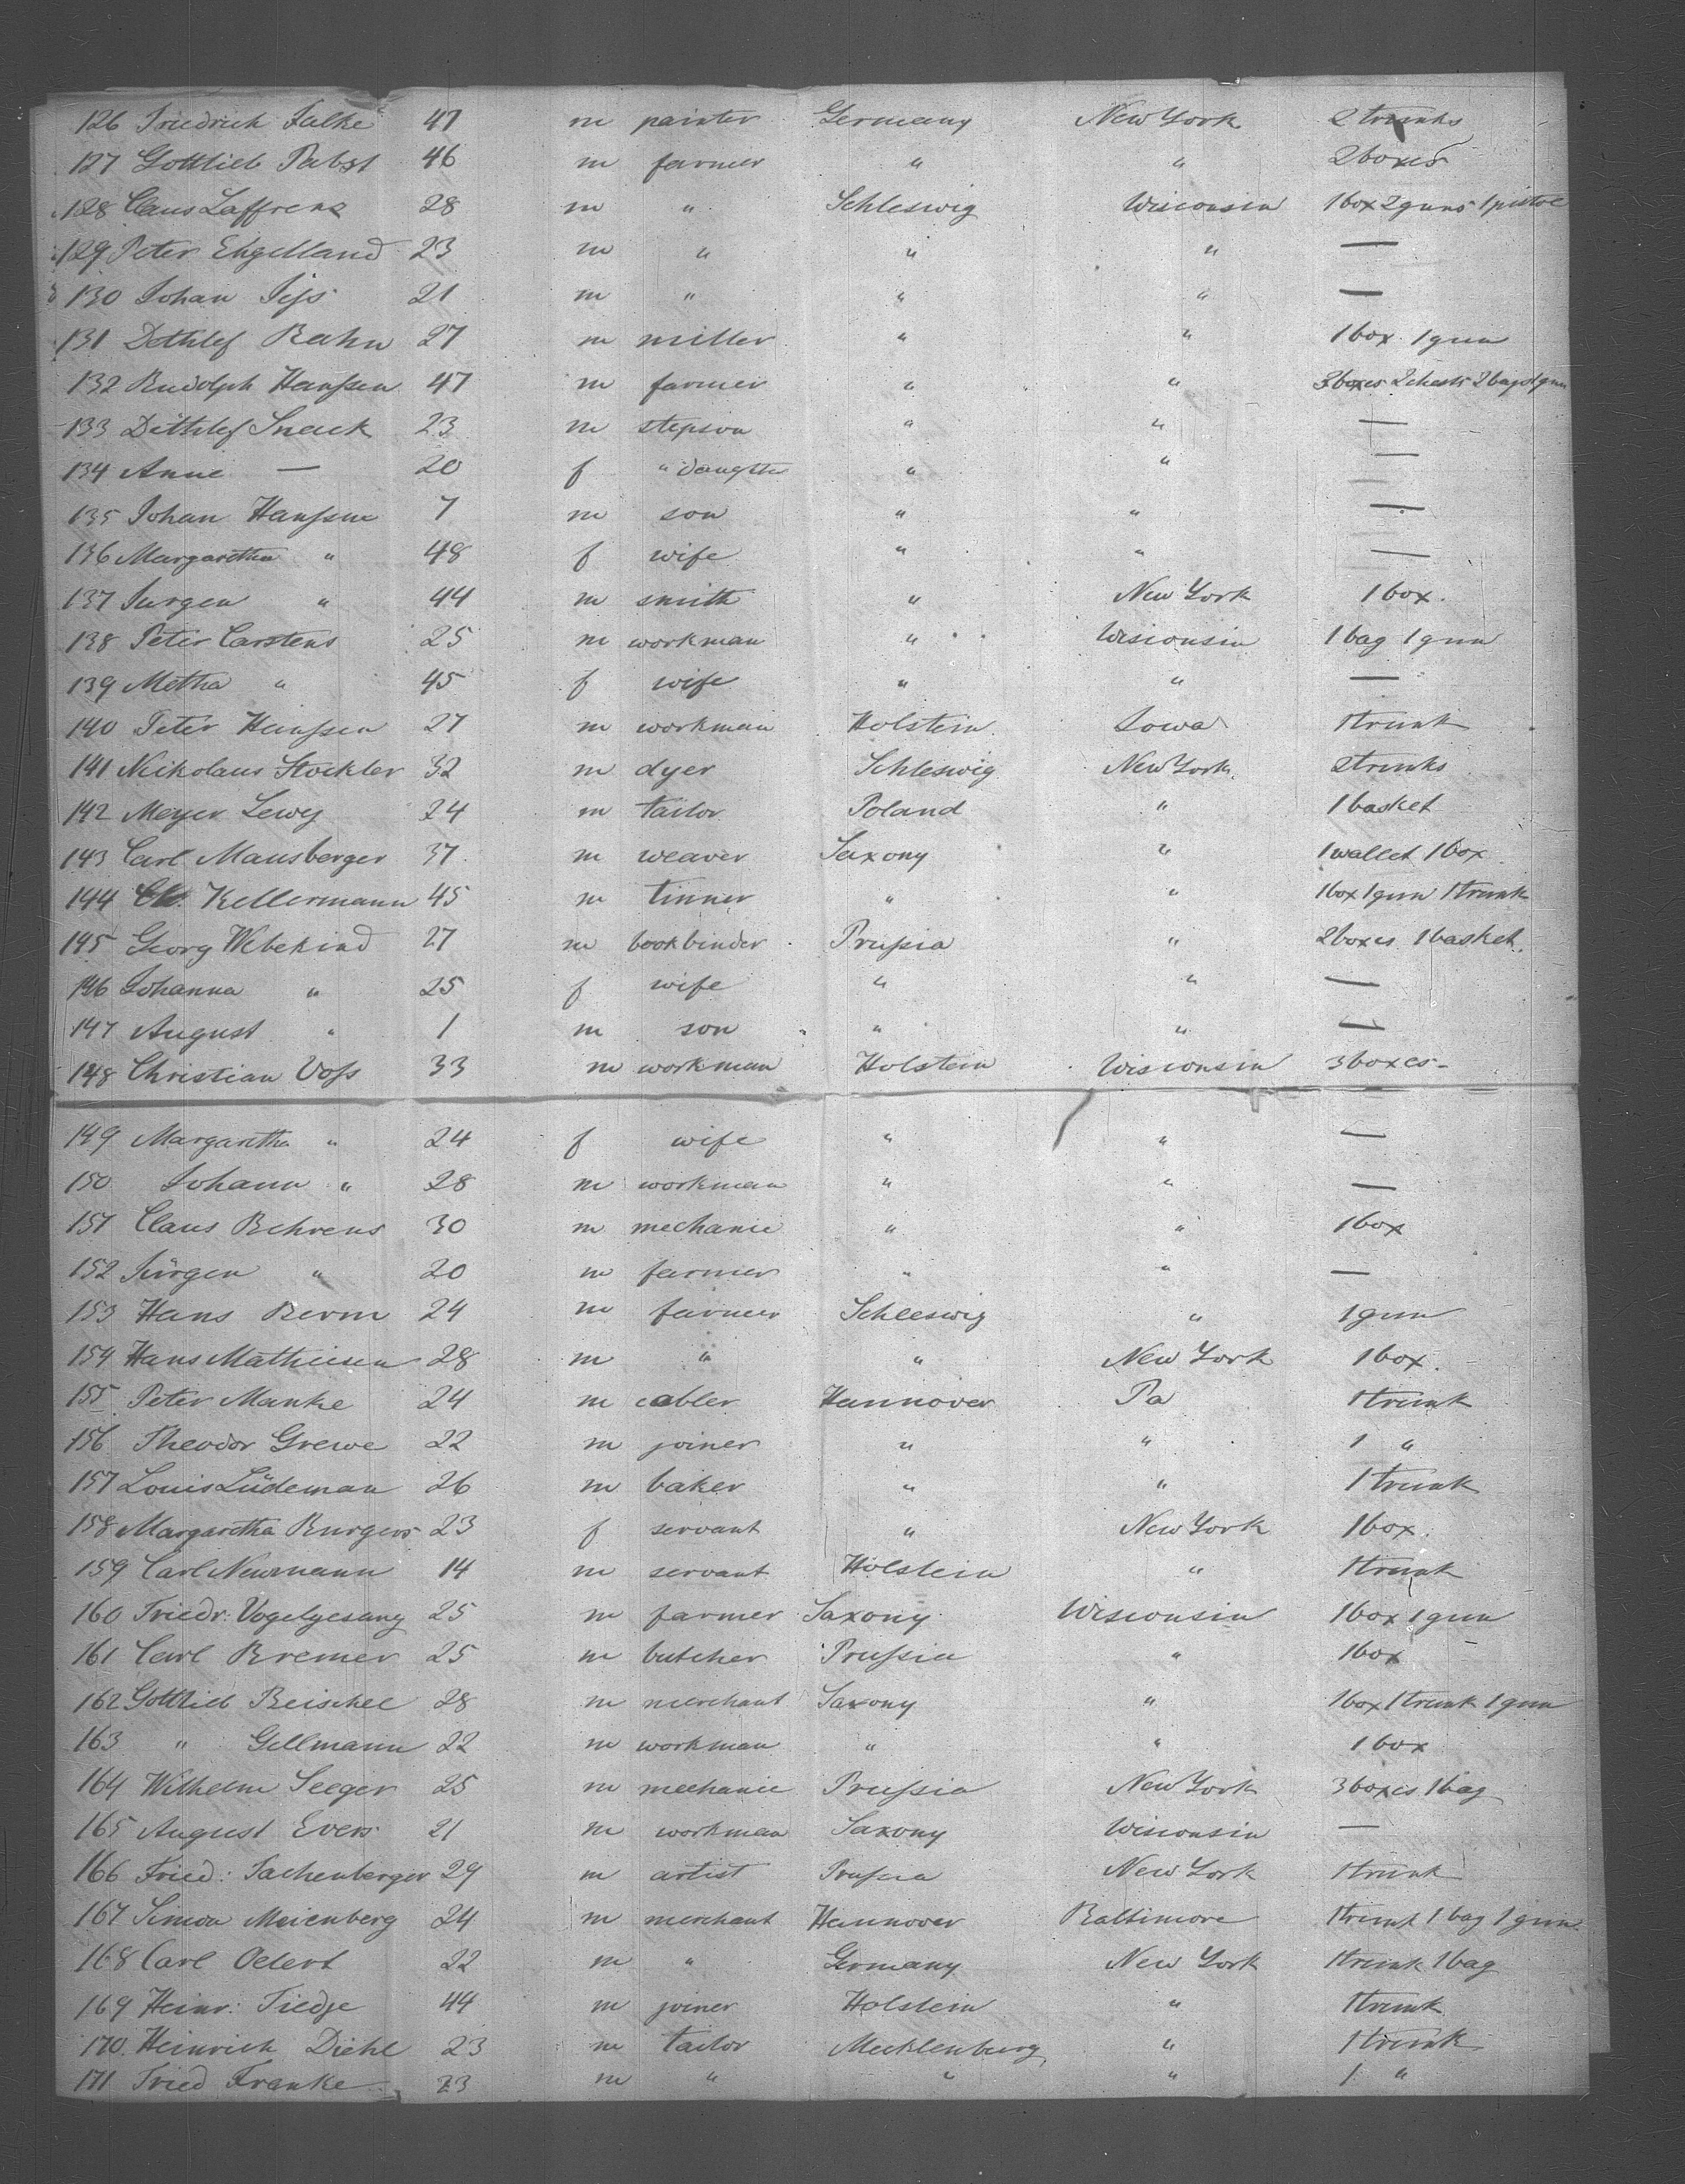 126 Friedrich Falke 47 m painter Germany New York 2 trunks
127 Gottlieb Pabst 46 m farmer " " 2 boxes
128 Claus Laffrenz 28 m " Schleswig Wisconsin 1 box 2 guns 1 pistol
129 Peter Ehgelland 23 m " " " —
130 Johan Jess 21 m " " " —
131 Dethlef Rahn 27 m miller " " 1 box 1 gun
132 Rudolph Hanssen 47 m farmer " " 3 boxes 2 chests 2 bags 1 gun
133 Dethlef Snack 23 m stepson " " —
134 Anne — 20 f " daughter " " —
135 Johan Hanssen 7 m son " " —
136 Margaretha " 48 f wife " " —
137 Jurgen " 44 m smith " New York 1 box.
138 Peter Carstens 25 m workman " Wisconsin 1 bag 1 gun
139 Metha " 45 f wife " " —
140 Peter Hanssen 27 m workman Holstein Iowa 1 trunk
141 Neikolaus Stockler 32 m dyer Schleswig New York 2 trunks
142 Meyer Lewy 24 m tailor Poland " 1 basket
143 Carl Mausberger 37 m weaver Saxony " 1 wallet 1 box
144 Kellermann 45 m tinner " " 1 box 1 gun 1 trunk
145 Georg Webekind 27 m bookbinder Prussia " 2 boxes 1 basket.
146 Johanna " 25 f wife " " —
147 August " 1 m son " " —
148 Christian Voss 33 m workman Holstein Wisconsin 3 boxes
149 Margaretha " 24 f wife " " —
150 Johann " 28 m workman " " —
151 Claus Behrens 30 m mechanic " " 1 box
152 Jürgen " 20 m farmer " " —
153 Hans Berm 24 m farmer Schleswig " 1 gun
154 Hans Mathiesen 28 m " " New York 1 box.
155 Peter Manke 24 m cobler Hannover Pa 1 trunk
156 Theodor Grewe 22 m joiner " " 1 "
157 Louis Lüdeman 26 m baker " " 1 trunk
158 Margaretha Burgers 23 f servant " New York 1 box.
159 Carl Neumann 14 m servant Holstein " 1 trunk
160 Friedr: Vogelgesang 25 m farmer Saxony Wisconsin 1 box 1 gun
161 Carl Bremer 25 m butcher Prussia " 1 box
162 Gottlieb Beischel 28 m merchant Saxony " 1 box 1 trunk 1 gun
163 " Gellmann 22 m workman " " 1 box
164 Wilhelm Seeger 25 m mechanic Prussia New York 3 boxes 1 bag
165 August Evers 21 m workman Saxony Wisconsin —
166 Fried: Sachenberger 29 m artist Prussia New York 1 trunk
167 Simon Meienberg 24 m merchant Hannover Baltimore 1 trunk 1 bag 1 gun
168 Carl Oelert 22 m " Germany New York 1 trunk 1 bag
169 Heinr: Tiedje 44 m joiner Holstein " 1 trunk
170. Heinrich Diehl 23 m tailor Mecklenburg " 1 trunk
171 Fried Franke 23 m " " " 1 "